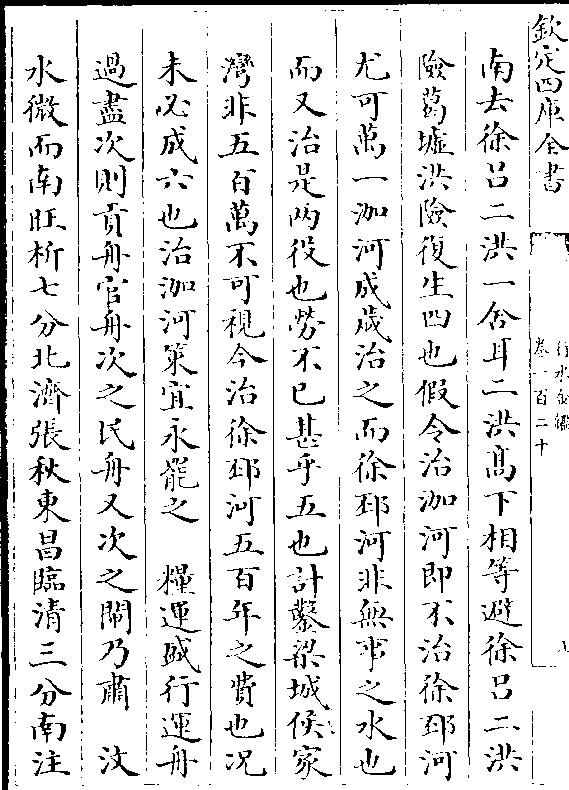 欽定四庫全書
行水金鑑
卷一百二十
南去徐呂二洪一舍耳二洪髙下相等避徐呂二洪
險葛墟洪險復生四也假令治泇河即不治徐邳河
尤可萬一泇河成歲治之而徐邳河非無事之水也
而又治是两役也勞不已甚乎五也計鑿梁城侯家
灣非五百萬不可視今治徐邳河五百年之費也况
未必成六也治泇河策宜永罷之　糧運盛行運舟
過盡次則貢舟官舟次之民舟又次之閘乃肅　汶
水微而南旺析七分北濟張秋東昌臨清三分南注